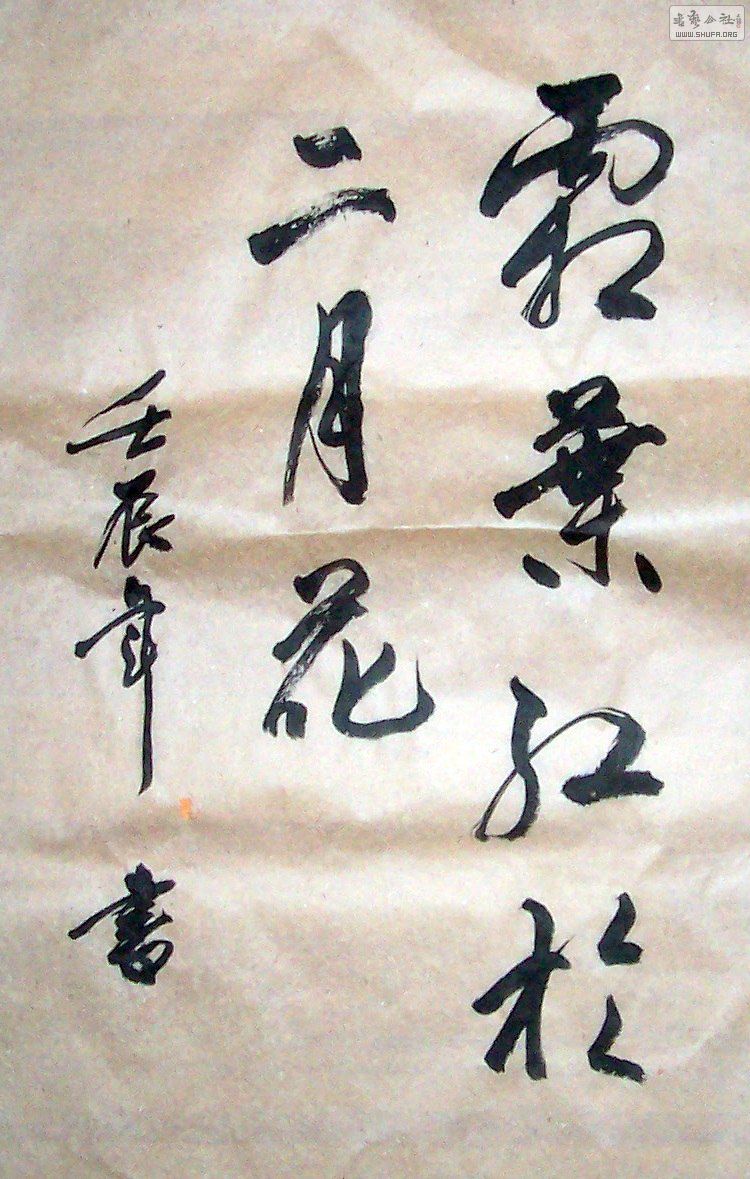 霜葉红於
二月花
壬辰年 書
书艺公社
WWW.SHUFA.ORG